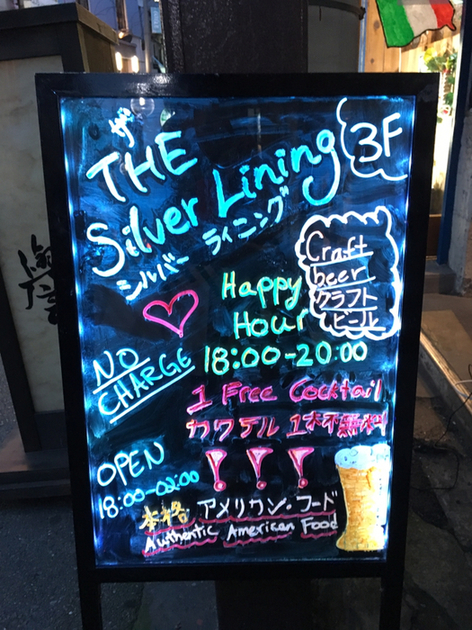 ザ
THE
3F
Silver Lining
シルバー ライニング
Craft
beer
クラフト
ビール
Happy
Hour
18:00-20:00
NO
CHARGE
1 Free Cocktail
カクテル 1杯無料
!!!
OPEN
18:00-02:00
本格 アメリカン・フード
Authentic American Food